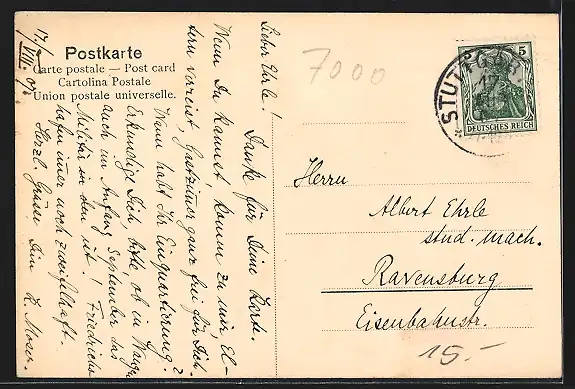 17./VIII. 07.
Postkarte
Carte postale — Post card
Cartolina Postale
Union postale universelle.
Lieber Ehrle!
Danke für Deine Karte.
Wenn Du kannst, komm zu mir, El-
tern verreist, Gastzimmer ganz frei für Dich.
Wann habt Ihr Einquartierung?
Erkundige Dich, bitte ob in Wangen
auch im Anfang September das
Militär in den ist! Friedrichs-
hafen immer noch zweifelhaft.
Herzl. Grüsse Dein K. Moser
7000
STUTTGART
5
DEUTSCHES REICH
Herrn
Albert Ehrle
stud. mach.
Ravensburg
Eisenbahnstr.
15.-